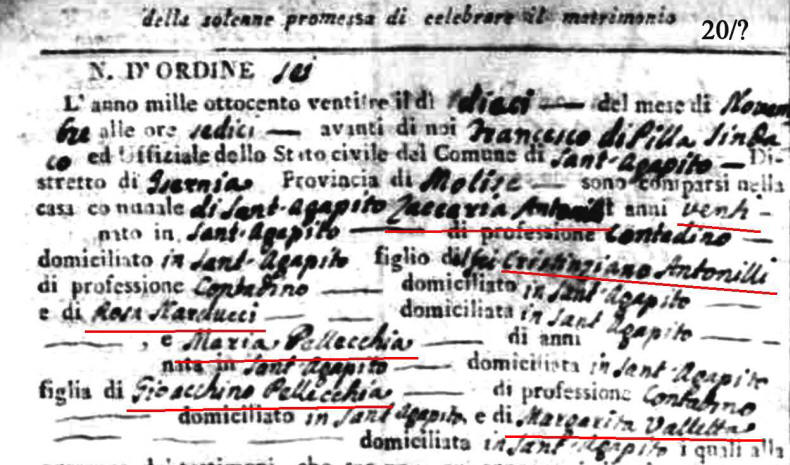 della solenne promessa di celebrare il matrimonio
20/?
N. D'ORDINE sei
L'anno mille ottocento ventitre il dì dieci — del mese di Novem
bre alle ore sedici — avanti di noi Francesco di Pilla Sinda
co ed Uffiziale dello Stato civile del Comune di Sant-Agapito — Di-
stretto di Isernia Provincia di Molise — sono comparsi nella
casa comunale di Sant-Agapito Zaccaria Antonilli anni venti -
nato in Sant-Agapito — di professione Contadino —
domiciliato in Sant-Agapito figlio del fu Cristinziano Antonilli
di professione Contadino — domiciliato in Sant Agapito —
e di Rosa Narducci — domiciliata in Sant Agapito —
— , e Maria Pellecchia di anni —
nata in Sant-Agapito — domiciliata in Sant-Agapito
figlia di Gioacchino Pellecchia di professione Contadino
— domiciliato in Sant Agapito, e di Margarita Valletta
— domiciliata in Sant-Agapito i quali alla